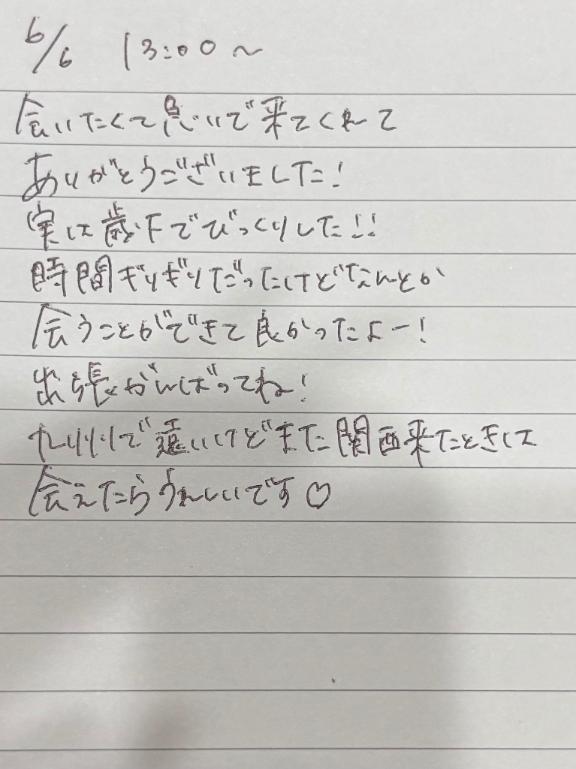 6/6 13:00〜
会いたくて急いで来てくれて
ありがとうございました!
実は歳下でびっくりした!!
時間ぎりぎりだったけどなんとか
会うことができて良かったよー!
出張がんばってね!
九州で遠いけどまた関西来たときは
会えたらうれしいです♡